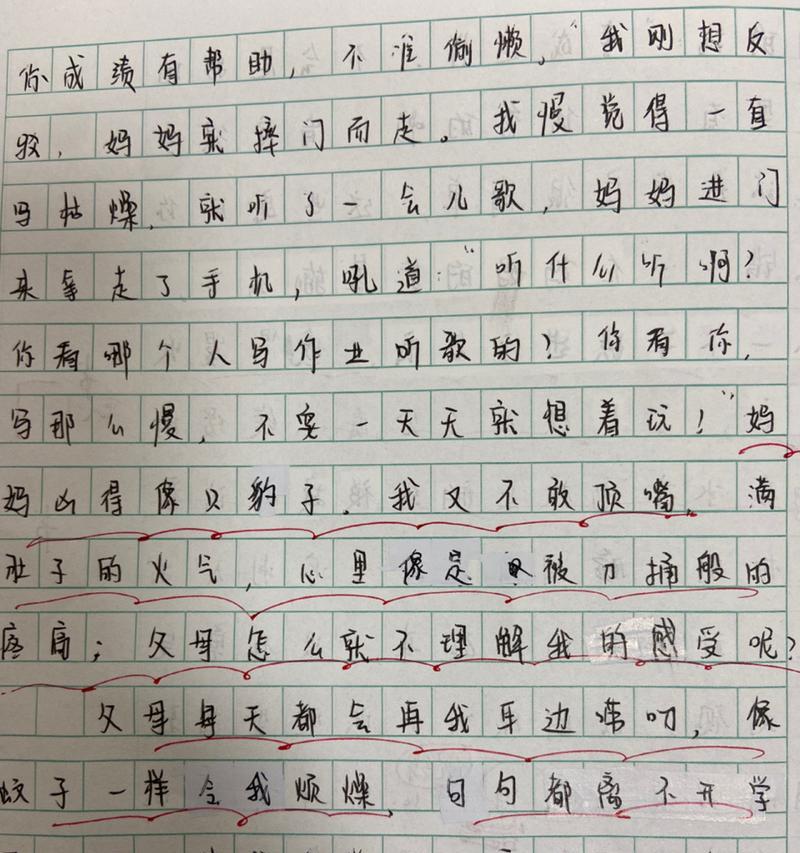 你成绩有帮助，不准偷懒，“我刚想反
驳，妈妈就摔门而走。我慢觉得一直
写枯燥，就听了一会儿歌，妈妈进门
来拿走了手机，吼道：“听什么听啊？
你看哪个人写作业听歌的？你看你，
写那么慢，不要一天天就想着玩！”妈
妈凶得像只豹子，我又不敢顶嘴。满
肚子的火气，心里像是 被刀捅般的
疼痛；父母怎么就不理解我的感受呢？
父母每天都会再我耳边唠叨，像
蚊子一样令我烦燥，句句都离不开学